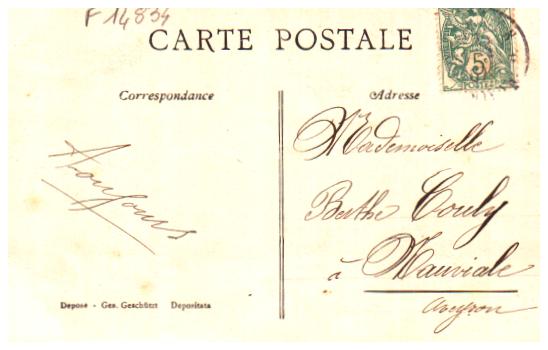 F 14834
CARTE POSTALE
Correspondance
Adresse
5c
POSTES
Mademoiselle
Berthe Couly
à Mauriale
Aveyron
Toujours
Déposé - Ges. Geschützt Depositata